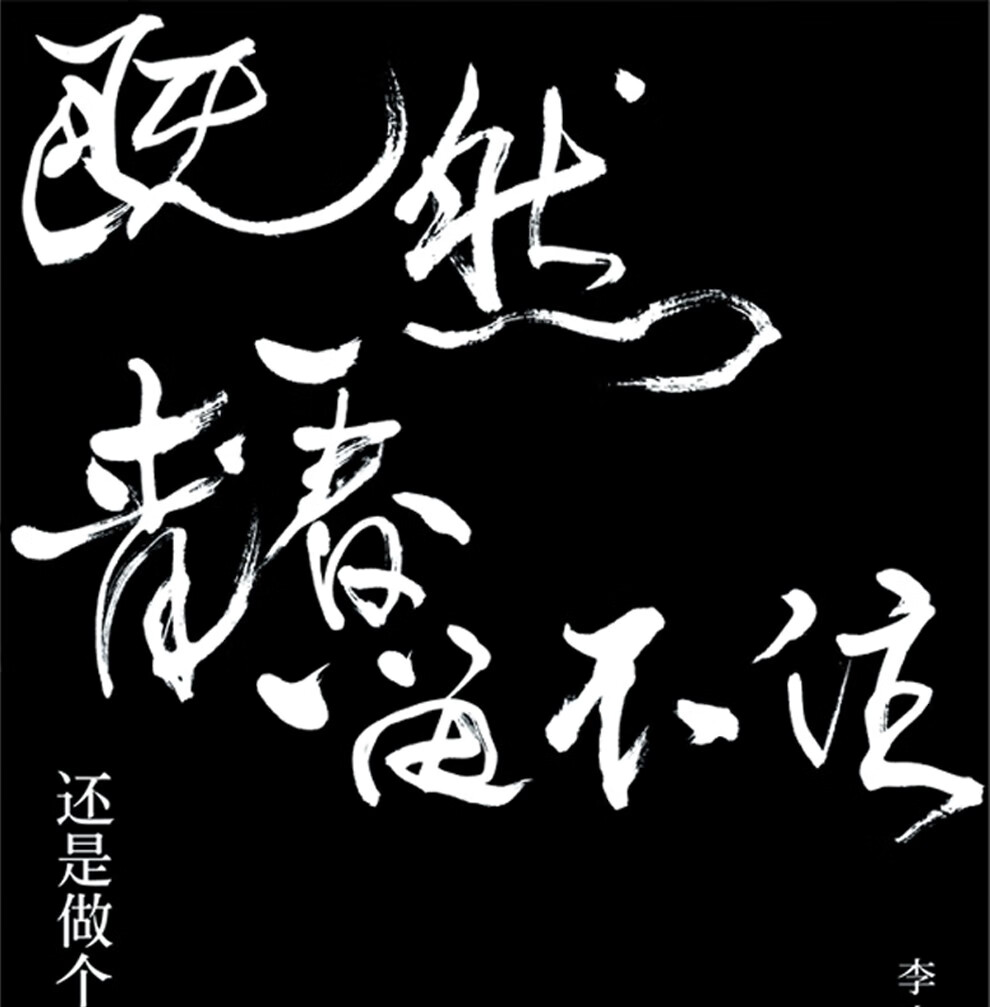 既然
青春
留不住
还是做个
李